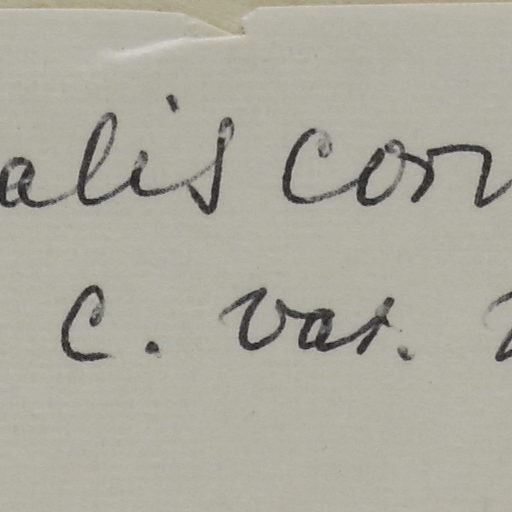 alis corn
c. var.